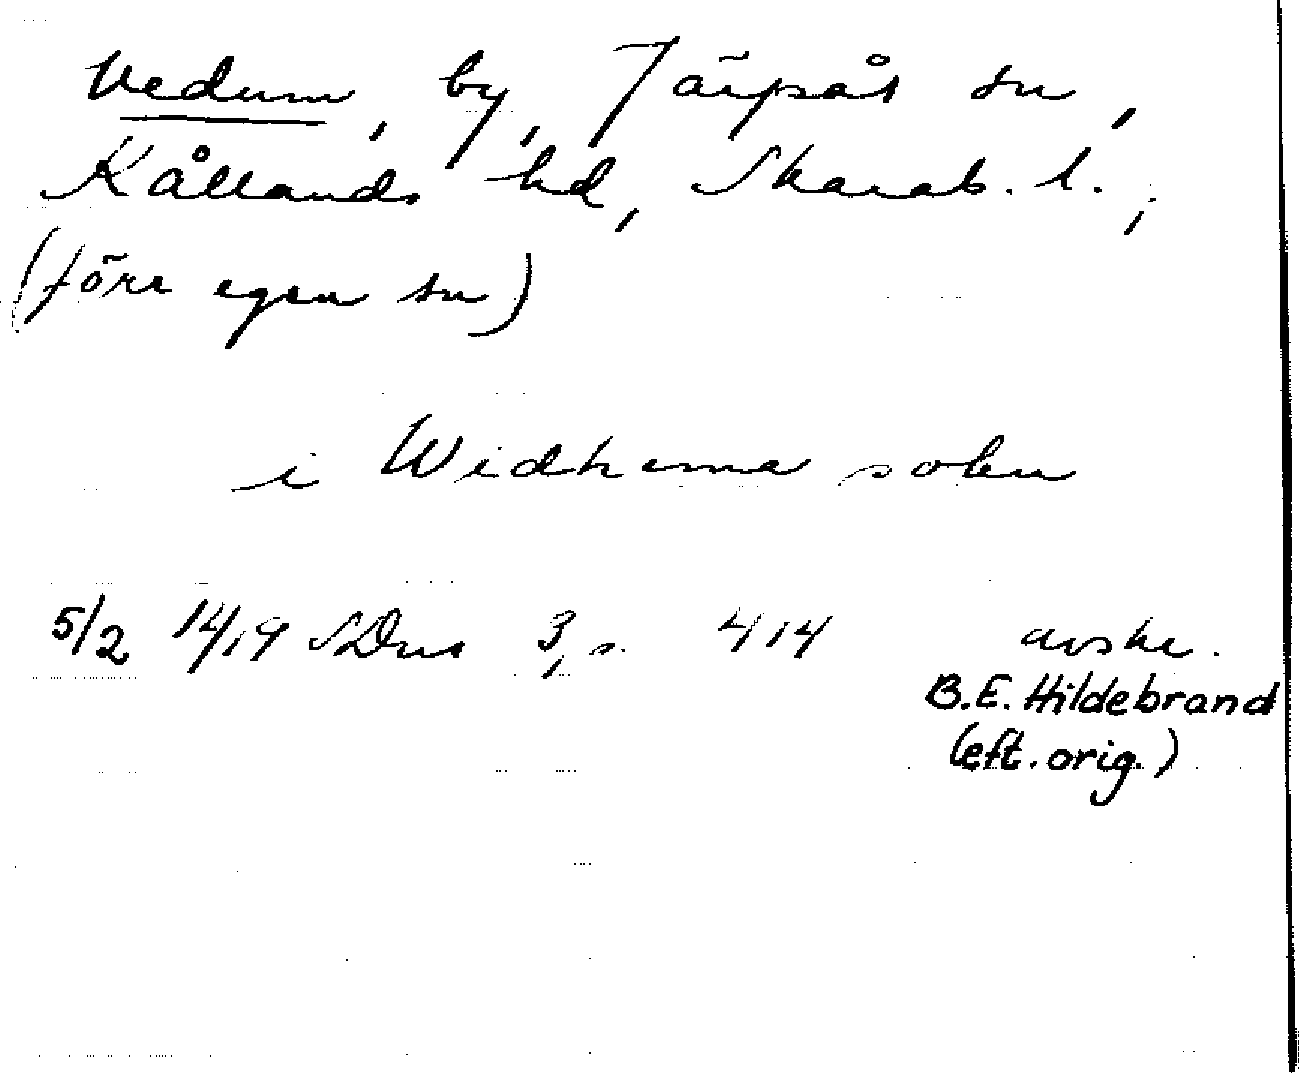 Vedum, by, Järpås sn,
Kållands hd, Skarab. l.,
(före egen sn)
i Widhema sokn
5/2 1419 SDns 3, s. 414 avskr.
B.E. Hildebrand
(eft. orig.)